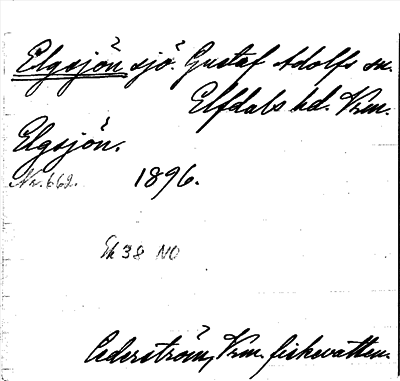 Elgsjön sjö. Gustaf Adolfs sn.
Elfdals hd. Vrm.
Elgsjön.
Nr. 662. 1896.
38 NO
Cederström, Vrm. fiskevatten.